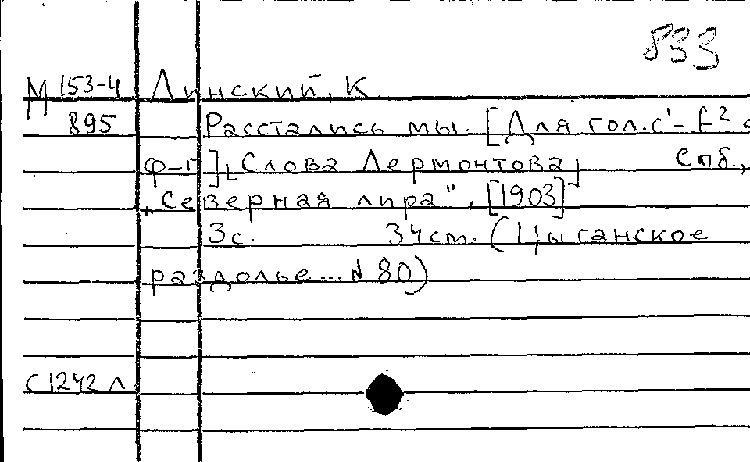 833
М 153-4 Линский, К.
895 Расстались мы. [Для гол. с'-f² с
ф-п], [Слова Лермонтова] Спб.,
„Северная лира", [1903]
3с. 34см. (Цыганское
раздолье... N 80)
С 1242 л